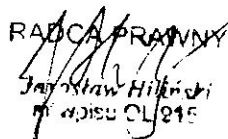 RADCA PRAWNY
Jarosław Hiliński
nr wpisu OL 215